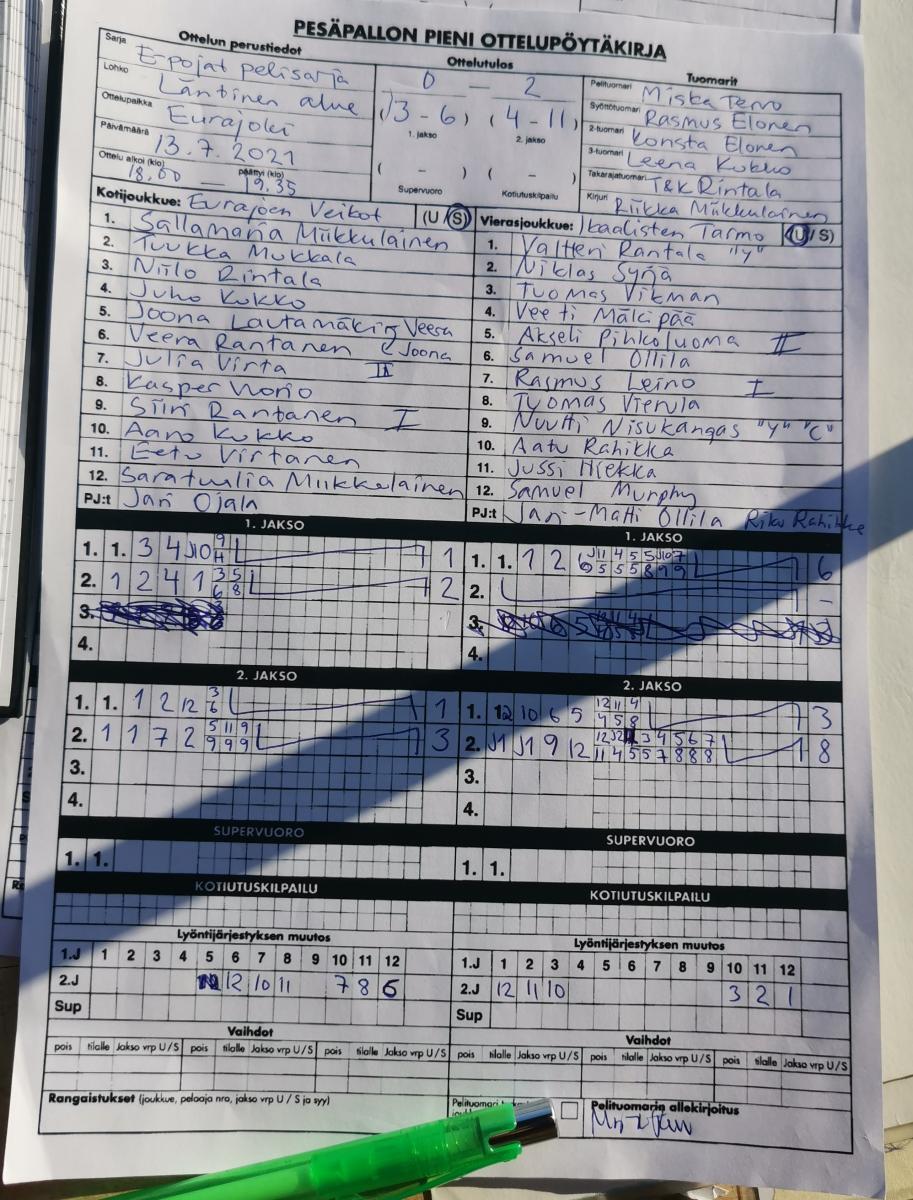 PESÄPALLON PIENI OTTELUPÖYTÄKIRJA
Ottelun perustiedot
Sarja E-pojat pelisarja
Lohko Läntinen alue
Ottelupaikka Eurajoki
Päivämäärä 13.7.2021
Ottelu alkoi (klo) päättyi (klo)
18.00 — 19.35
Ottelutulos
0 – 2
(3 - 6) (4 - 11)
1. jakso 2. jakso
( – ) ( – )
Supervuoro Kotiutuskilpailu
Tuomarit
Pelituomari Miska Tervo
Syöttötuomari Rasmus Elonen
2-tuomari Konsta Elonen
3-tuomari Leena Kukko
Takarajatuomari T&K Rintala
Kirjuri Riikka Miikkulainen
Kotijoukkue: Eurajoen Veikot (U/S)
1. Sallamaria Miikkulainen
2. Tuukka Mukkala
3. Niilo Rintala
4. Juho Kukko
5. Joona Lautamäki Veera
6. Veera Rantanen Joona
7. Julia Virta II
8. Kasper Vuorio
9. Siiri Rantanen I
10. Aaro Kukko
11. Eetu Virtanen
12. Saratuulia Miikkulainen
PJ:t Jari Ojala
Vierasjoukkue: Ikaalisten Tarmo (U/S)
1. Valtteri Rantala "Y"
2. Niklas Syrjä
3. Tuomas Vikman
4. Veeti Mälkipää
5. Akseli Pihkoluoma II
6. Samuel Ollila
7. Rasmus Leino I
8. Tuomas Vierula
9. Nuutti Nisukangas "Y" "C"
10. Aatu Rahikka
11. Jussi Hiekka
12. Samuel Murphy
PJ:t Jari-Matti Ollila Riku Rahikka
1. JAKSO
1. 1. 3 4 J10 9 1
2. 1 2 4 1 3 5 2
6 8
3.
4.
1. JAKSO
1. 1. 1 2 6 J11 4 5 5 J10 7 6
5 5 5 8 9 9
2. –
3.
4.
2. JAKSO
1. 1. 1 2 12 3 1
6
2. 1 1 7 2 5 11 9 3
9 9 9
3.
4.
2. JAKSO
1. 12 10 6 5 12 11 4 3
4 5 8
2. J1 J1 9 12 3 4 5 6 7 8
11 4 5 5 7 8 8 8
3.
4.
SUPERVUORO
1. 1.
SUPERVUORO
1. 1.
KOTIUTUSKILPAILU
KOTIUTUSKILPAILU
Lyöntijärjestyksen muutos
1.J 1 2 3 4 5 6 7 8 9 10 11 12
2.J 12 10 11 7 8 6
Sup
Lyöntijärjestyksen muutos
1.J 1 2 3 4 5 6 7 8 9 10 11 12
2.J 12 11 10 3 2 1
Sup
Vaihdot
pois tilalle Jakso vrp U/S pois tilalle Jakso vrp U/S pois tilalle Jakso vrp U/S
Vaihdot
pois tilalle Jakso vrp U/S pois tilalle Jakso vrp U/S pois tilalle Jakso vrp U/S
Rangaistukset (joukkue, pelaaja nro, jakso vrp U / S ja syy)
Pelituomari
Pelituomarin allekirjoitus